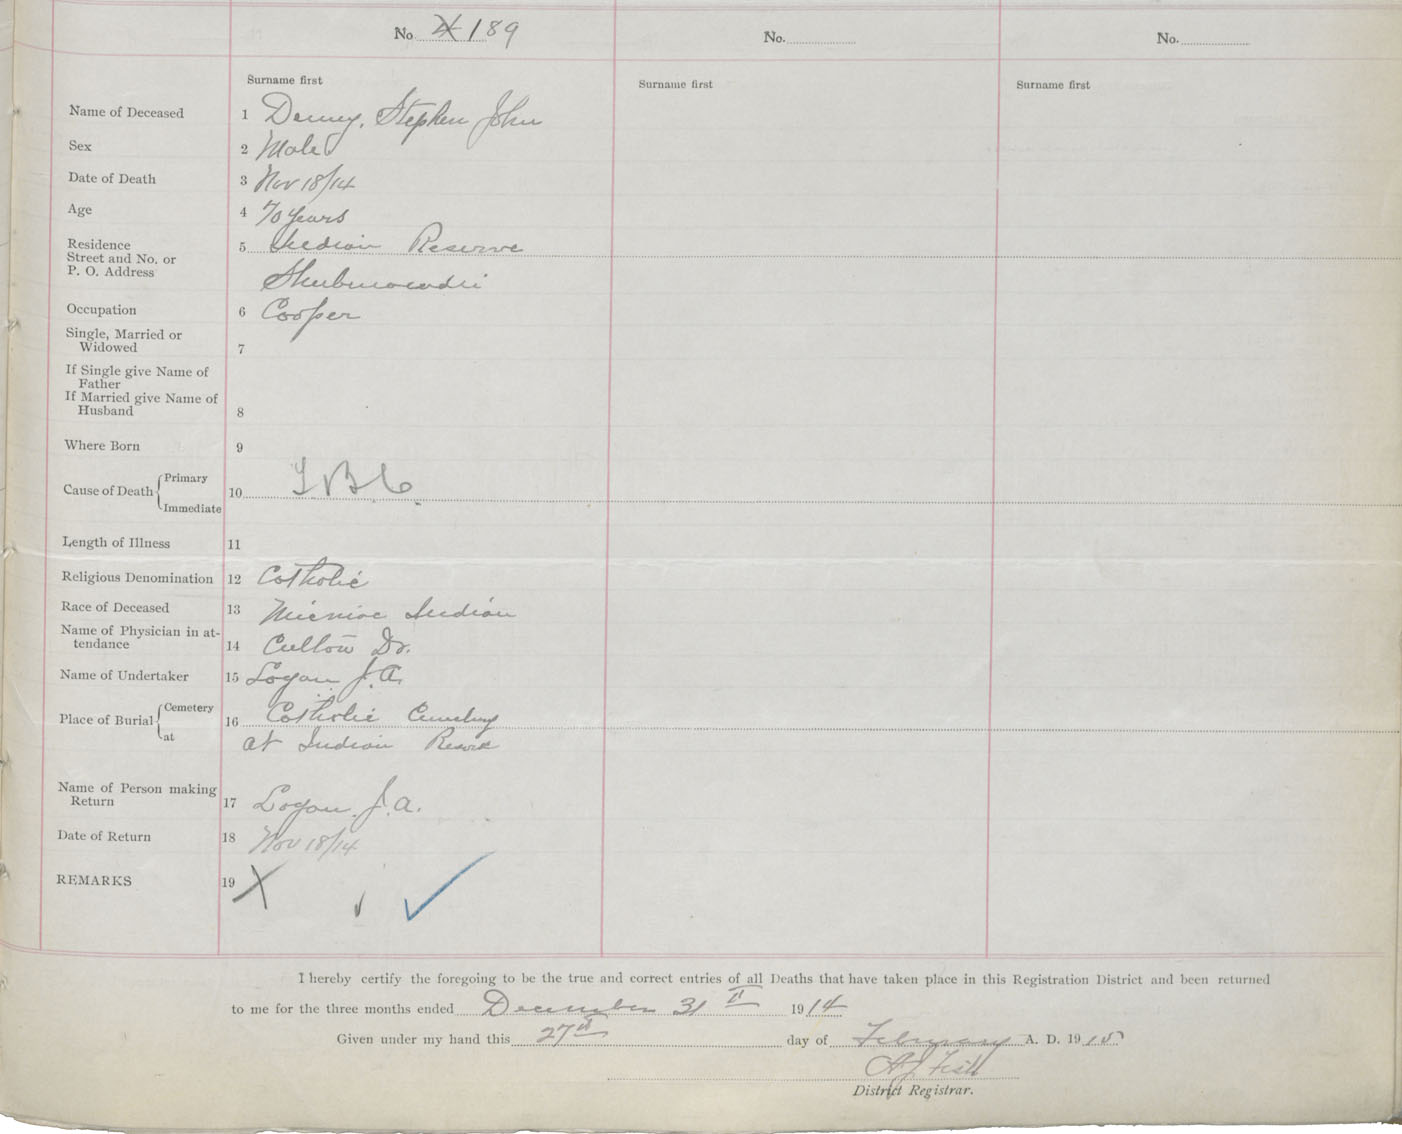 No. 189
No.
No.
Surname first
Surname first
Surname first
Name of Deceased 1 Denny, Stephen John
Sex 2 Male
Date of Death 3 Nov 18/14
Age 4 70 years
Residence
Street and No. or
P. O. Address
5 Indian Reserve
Occupation 6 Cooper
Single, Married or
Widowed 7
If Single give Name of
Father
If Married give Name of
Husband 8
Where Born 9
Cause of Death { Primary
Immediate
10 T B C
Length of Illness 11
Religious Denomination 12 Catholic
Race of Deceased 13 Micmac Indian
Name of Physician in at-
tendance 14 Dr.
Name of Undertaker 15 Logan J. A.
Place of Burial { Cemetery
at
16 Catholic Cemetery
at Indian Reserve
Name of Person making
Return 17 Logan J. A.
Date of Return 18 Nov 18/14
REMARKS 19 X ✓ ✓
I hereby certify the foregoing to be the true and correct entries of all Deaths that have taken place in this Registration District and been returned
to me for the three months ended December 31st 1914
Given under my hand this 27th day of February A. D. 1915
District Registrar.